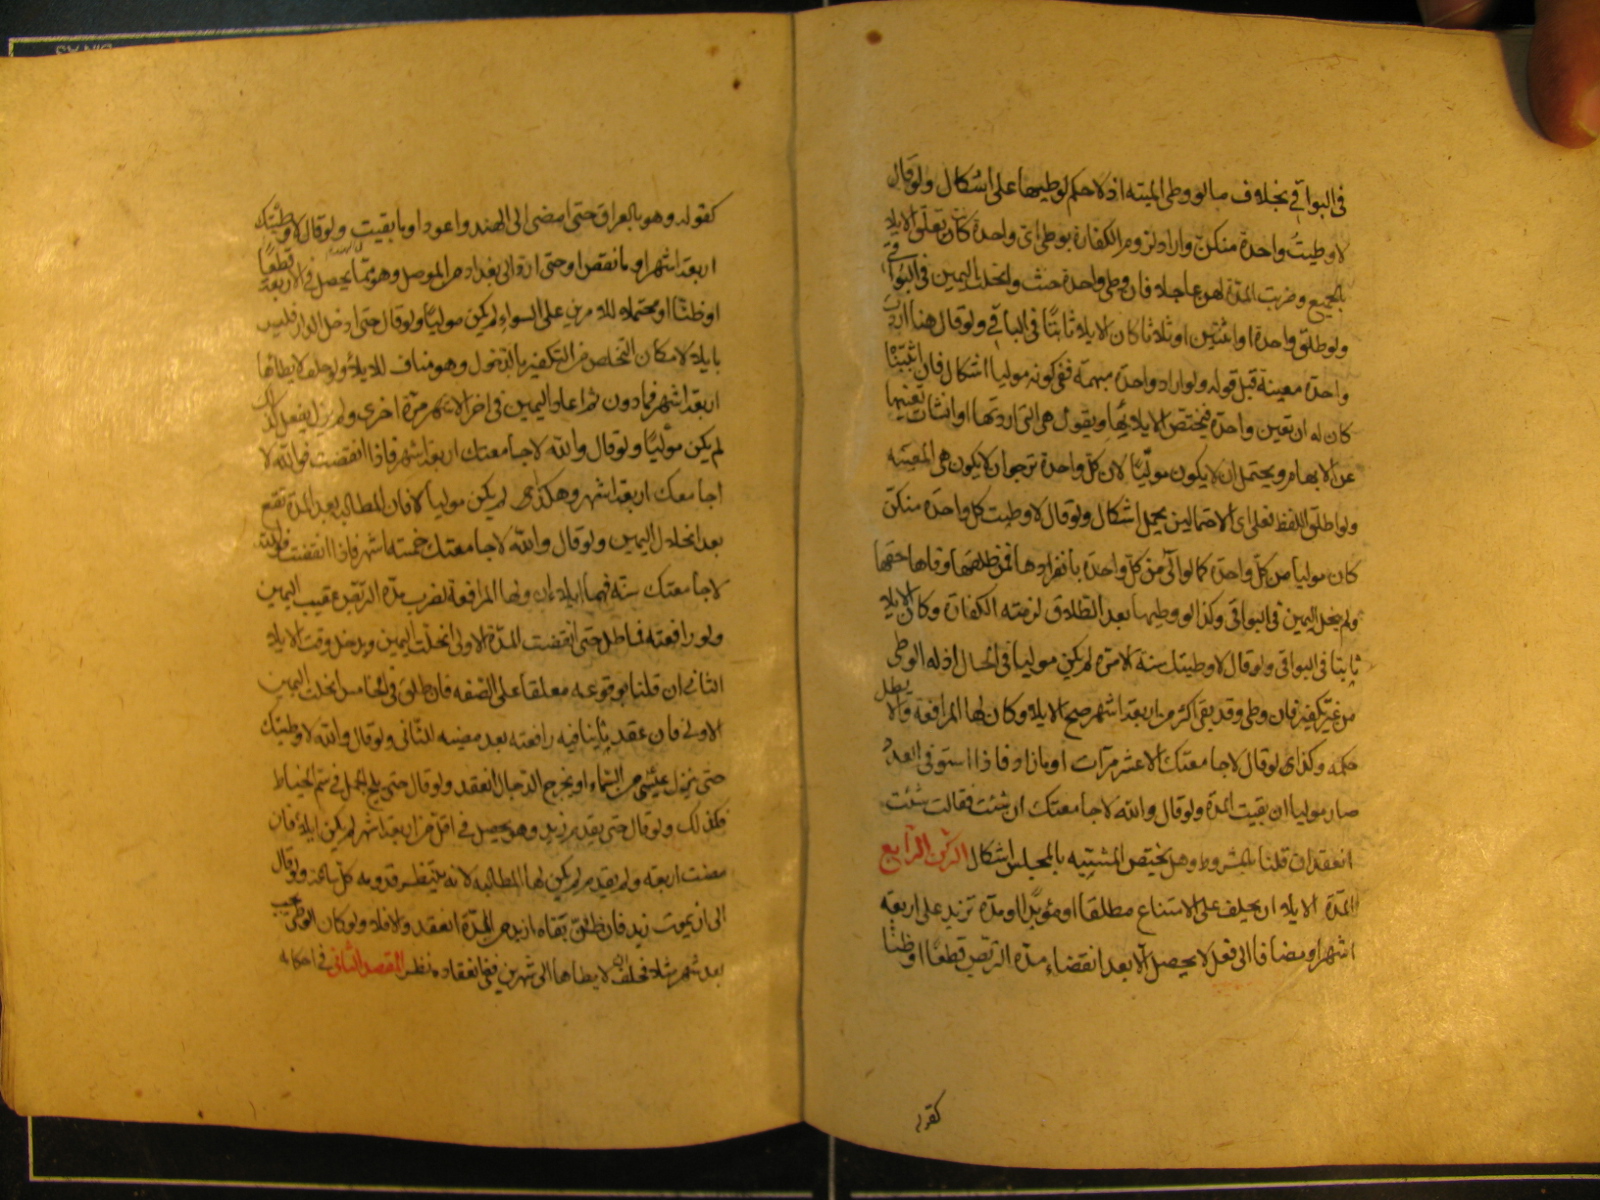 في البواقي بخلاف ما لو وطى الميتة اذ لا حكم لوطيها على اشكال ولو قال
لا وطيت واحدة منكن واراد لزوم الكفارة بوطى اى واحدة كان تعلق الايلاء
بالجميع وضربت المدة لهن عاجلا فان وطى واحدة حنث وانحلت اليمين في البواقي
ولو طلق واحدة او اثنتين او ثلاثا كان الايلاء ثابتا في الباقي ولو قال هنا اردت
واحدة معينة قبل قوله ولو اراد واحدة مبهمة ففي كونه موليا اشكال فان اثبتناه
كان له ان يعين واحدة فيختص الايلاء بها ويقول هى التى اردتها او انشات تعيينها
عن الابهام ويحتمل ان لا يكون موليا لان كل واحدة ترجو ان لا يكون هى المعينة
ولو اطلق اللفظ فعلى اى الاحتمالين يحمل اشكال ولو قال لا وطيت كل واحدة منكن
كان موليا من كل واحدة كما لو آلى من كل واحدة بانفرادها فمن طلقها وفاها حقها
ولم ينحل اليمين في البواقي وكذا لو وطيها بعد الطلاق لزمته الكفارة وكان الايلاء
ثابتا في البواقي ولو قال لا وطيتك سنة الا مرة لم يكن موليا في الحال اذ له الوطى
من غير تكفير فان وطى وقد بقى اكثر من اربعة اشهر صح الايلاء وكان لها المرافعة والا يبطل
حكمه وكذا لو قال لا جامعتك الا عشر مرات او ما زاد فاذا استوفى العدد
صار موليا ان بقيت المدة ولو قال والله لا جامعتك ان شئت فقالت شئت
انعقد ان قلنا بالمشروط وهل يختص المشيية بالمجلس اشكال الركن الرابع
المدة الايلاء ان يحلف على الامتناع مطلقا او مؤبدا او مدة تزيد على اربعة
اشهر او مضافا الى فعل لا يحصل الا بعد انقضاء مدة التربص قطعا او ظنا
كقوله
كقوله وهو بالعراق حتى امضى الى الهند واعود او ما بقيت ولو قال لا وطيتك
اربعة اشهر او ما نقص او حتى ارد الى بغداد من الموصل وهو مما يحصل في الاربعة قطعا
او ظنا او محتملا للامرين على السواء لم يكن موليا ولو قال حتى ادخل الدار فليس
بايلاء لامكان التخلص من التكفير بالدخول وهو مناف للايلاء ولو حلف لا يطاها
اربعة اشهر فما دون ثم اعاد اليمين في اخر الاشهر مرة اخرى ولم يزل يفعل كذلك
لم يكن موليا ولو قال والله لا جامعتك اربعة اشهر فاذا انقضت فوالله لا
اجامعك اربعة اشهر وهكذا لم يكن موليا لان المطالبة بعد المدة تقع
بعد انحلال اليمين ولو قال والله لا جامعتك خمسة اشهر فاذا انقضت فوالله
لا جامعتك سنة فهما ايلاءان ولها المرافعة لضرب مدة التربص عقيب اليمين
ولو رافعته فماطل حتى انقضت المدة الاولى انحلت اليمين ويدخل وقت الايلاء
الثاني ان قلنا بوقوعه معلقا على الصفة فان طلق في الخامس انحلت اليمين
الاولى فان عقد ثانيا فيه رافعته بعد مضيه الثاني ولو قال والله لا وطيتك
حتى ينزل عيسى من السماء او يخرج الدجال انعقد ولو قال حتى يلج الجمل في سم الخياط
فكذلك ولو قال حتى يقدم زيد وهو يحصل في اقل من اربعة اشهر لم يكن ايلاء فان
مضت اربعة ولم يقدم لم يكن لها المطالبة لانه ينتظر قدومه كل ساعة ولو قال
الى ان يموت زيد فان ظن بقاه ازيد من المدة انعقد والا فلا ولو كان الوطى يجب
بعد شهر مثلا فحلف ان لا يطاها الى شهرين ففي انعقاده نظر المقصد الثاني في احكامه